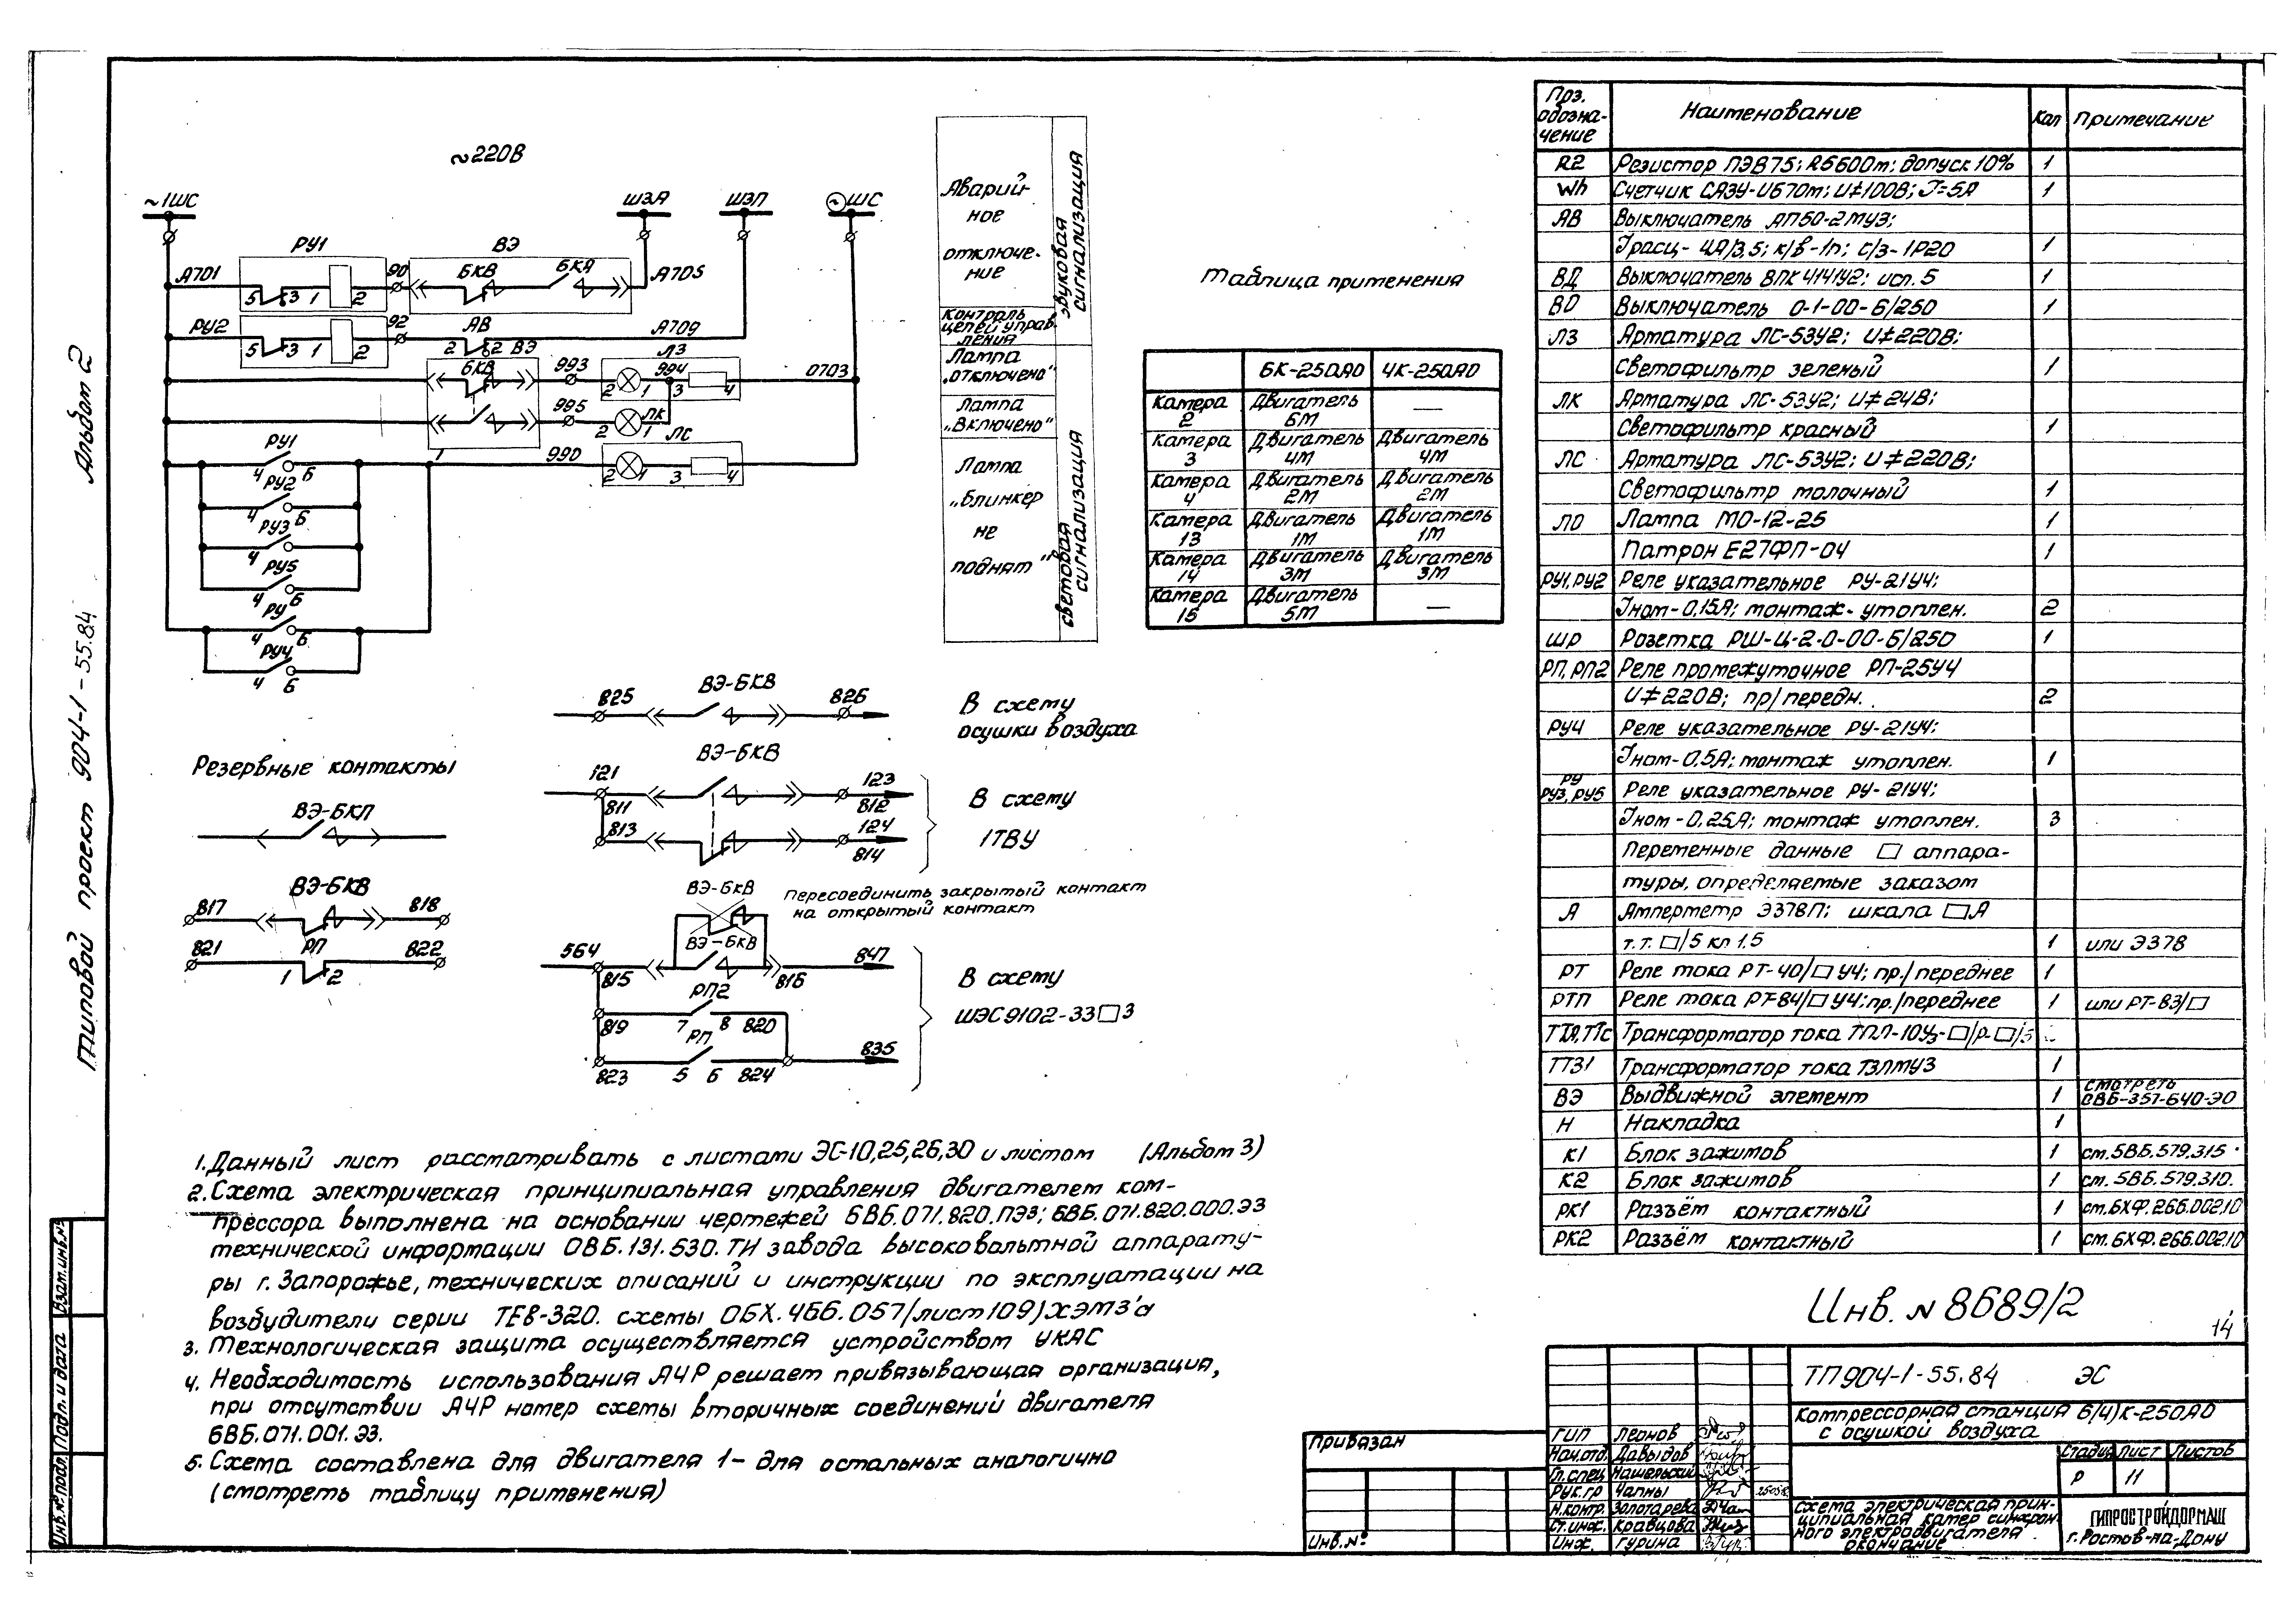 Альбом 2
Типовой проект 904-1-55.84
~220В
~1ШС
ШЗА
ШЗП
~ШС
РУ1
ВЭ
А701
5 3 1 2
90
БКВ
БКА
А705
РУ2
5 3 1 2
92
АВ
2 2
А709
ВЭ
БКВ
993
ЛЗ
994
2 1 3 4
0703
995
ЛК
2 1
990
ЛС
2 1 3 4
РУ1
4 6
РУ2
4 6
РУ3
4 6
РУ5
4 6
РУ
4 6
РУ4
4 6
Аварий-
ное
отключе-
ние
Контроль
цепей управ-
ления
Лампа
„отключено"
Лампа
„Включено"
Лампа
„Блинкер
не
поднят"
звуковая
сигнализация
световая
сигнализация
825
ВЭ-БКВ
826
В схему
осушки воздуха
Резервные контакты
ВЭ-БКП
817
ВЭ-БКВ
818
821
РП
822
1 2
ВЭ-БКВ
121
123
811
812
813
124
814
В схему
1ТВУ
ВЭ-БКВ
Пересоединить закрытый контакт
на открытый контакт
ВЭ-БКВ
564
847
815
816
РП2
819
7 8 820
РП
835
823
5 6 824
В схему
ШЭС9102-33□3
Таблица применения
6К-250АО 4К-250АО
Камера 2 Двигатель 6М —
Камера 3 Двигатель 4М Двигатель 4М
Камера 4 Двигатель 2М Двигатель 2М
Камера 13 Двигатель 1М Двигатель 1М
Камера 14 Двигатель 3М Двигатель 3М
Камера 15 Двигатель 5М —
1. Данный лист рассматривать с листами ЭС-10,25,26,30 и листом (Альбом 3)
2. Схема электрическая принципиальная управления двигателем ком-
прессора выполнена на основании чертежей 6ВБ.071.820.ПЭ3; 6ВБ.071.820.000.ЭЗ
технической информации ОВБ.131.530.ТИ завода высоковольтной аппарату-
ры г. Запорожье, технических описаний и инструкции по эксплуатации на
возбудители серии ТЕ8-320. схемы ОБХ.466.057/лист109)ХЭМЗ'а
3. Технологическая защита осуществляется устройством УКАС
4. Необходимость использования АЧР решает привязывающая организация,
при отсутствии АЧР номер схемы вторичных соединений двигателя
6ВБ.071.001.ЭЗ.
5. Схема составлена для двигателя 1- для остальных аналогично
(смотреть таблицу применения)
Поз. обозна- чение Наименование Кол Примечание
R2 Резистор ПЭВ75; R5600м; допуск 10% 1
Wh Счетчик САЗУ-И670м; U≠100В; J=5А 1
АВ Выключатель АП50-2МУЗ;
Jрасц-4А/3,5; к/в-1п; с/з-1Р20 1
ВД Выключатель ВПК 4141У2; исп. 5 1
ВО Выключатель 0-1-00-6/250 1
ЛЗ Арматура ЛС-53У2; U≠220В;
Светофильтр зеленый 1
ЛК Арматура ЛС-53У2; U≠24В;
Светофильтр красный 1
ЛС Арматура ЛС-53У2; U≠220В;
Светофильтр молочный 1
ЛО Лампа МО-12-25 1
Патрон Е27ФП-04 1
РУ1, РУ2 Реле указательное РУ-21У4;
Jном-0,15А; монтаж-утоплен. 2
ШР Розетка РШ-Ц-2-0-00-6/250 1
РП, РП2 Реле промежуточное РП-25У4
U≠220В; пр/передн. 2
РУ4 Реле указательное РУ-21У4;
Jном-0,5А; монтаж утоплен. 1
РУ РУ3, РУ5 Реле указательное РУ-21У4;
Jном-0,25А; монтаж утоплен. 3
Переменные данные □ аппара-
туры, определяемые заказом
А Амперметр Э378П; шкала □А
т.т. □/5 кл 1.5 1 или Э378
РТ Реле тока РТ-40/□ У4; пр./переднее 1
РТП Реле тока РТ-84/□ У4; пр./переднее 1 или РТ-83/□
ТТА, ТТс Трансформатор тока ТПЛ-10У3-□/Р-□/5
ТТЗ1 Трансформатор тока ТЗЛМУЗ 1
ВЭ Выдвижной элемент 1 смотреть ОВБ-351-640-ЭО
Н Накладка 1
К1 Блок зажимов 1 см.5ВБ.579.315
К2 Блок зажимов 1 см.5ВБ.579.310.
РК1 Разъём контактный 1 см.6ХФ.266.002.10
РК2 Разъём контактный 1 см.6ХФ.266.002.10
Инв. № 8689/2
14
ТП904-1-55.84 ЭС
Компрессорная станция 6(4)К-250АО
с осушкой воздуха
Стадия Лист Листов
Р 11
Схема электрическая прин-
ципиальная камер синхрон-
ного электродвигателя
окончание
ГИПРОСТРОЙДОРМАШ
г. Ростов-на-Дону
ГИП Леонов
Нач.отд. Давыдов
Гл.спец Нашельский
Рук.гр Чапны
Н.контр. Золотарева
Ст.инж. Кравцова
Инж. Гурина
Привязан
Инв.№
Взам.инв.№
Подп. и дата
Инв.№ подл.